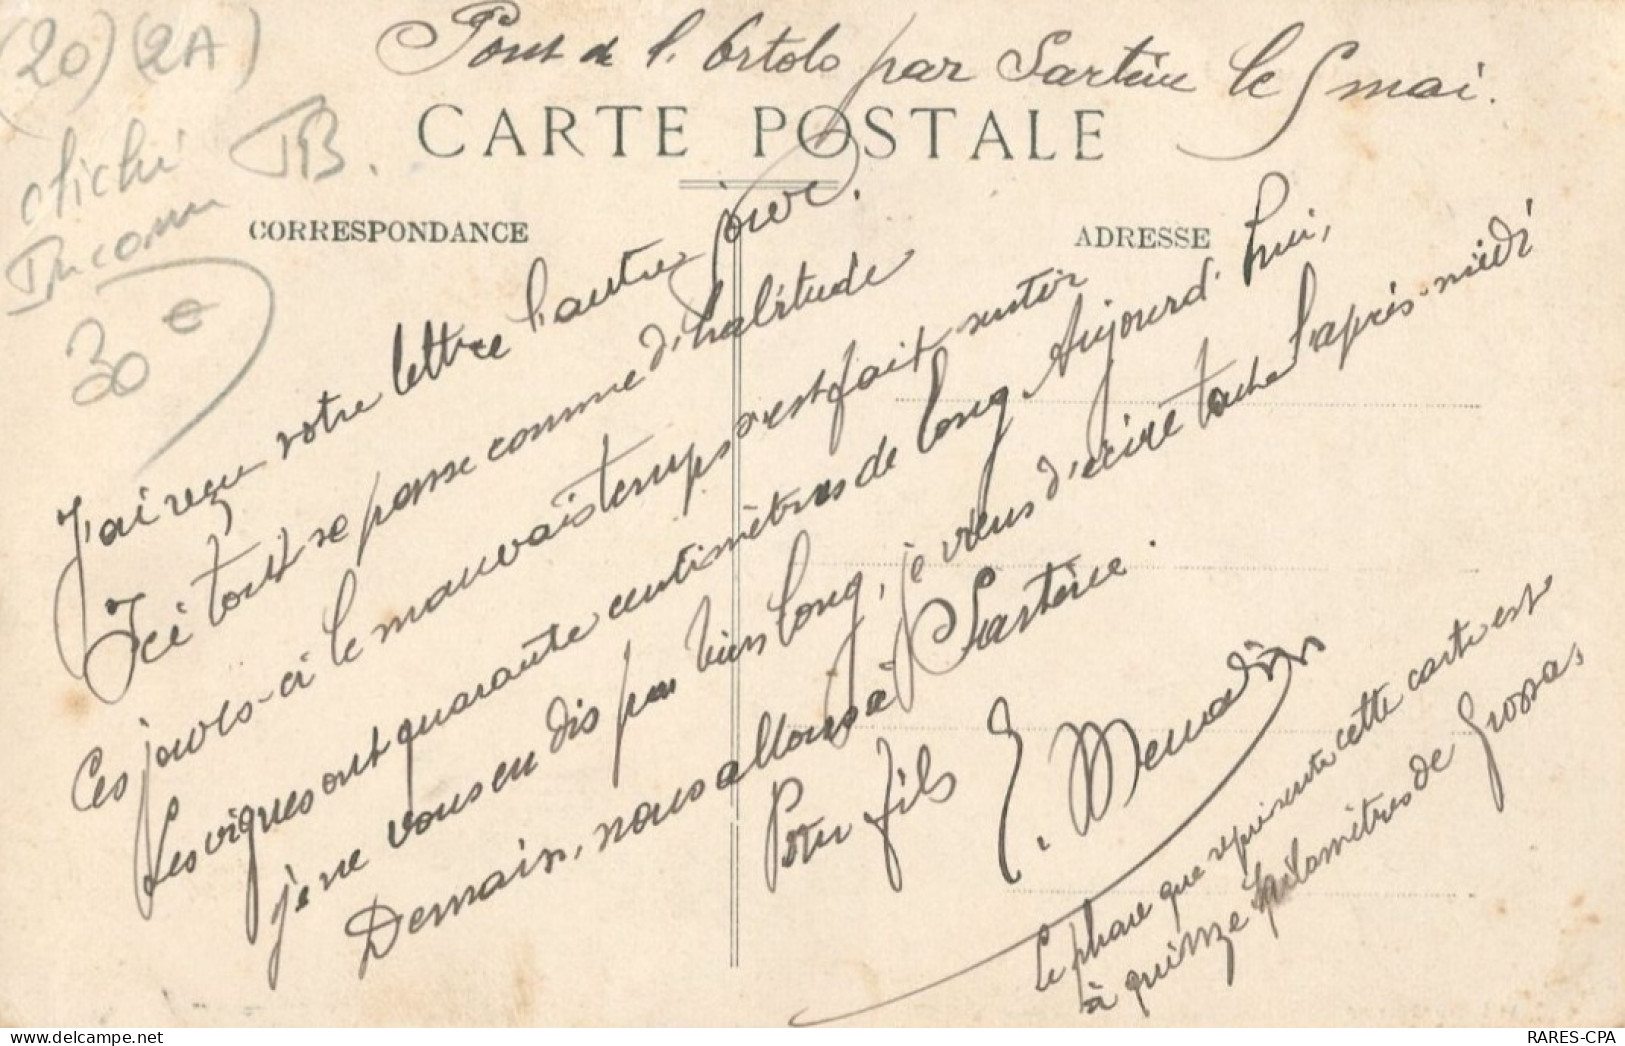 (20) (2A)
cliché TB.
Inconnu
30 €
Pont de l'Ortolo par Sartène le 5 mai.
CARTE POSTALE
CORRESPONDANCE
ADRESSE
J'ai reçu votre lettre l'autre jour.
Ici tout se passe comme d'habitude
Ces jours-ci le mauvais temps s'est fait sentir
Les vignes ont quarante centimètres de long. Aujourd'hui,
je ne vous en dis pas bien long, je viens d'écrire toute l'après-midi
Demain, nous allons à Sartène.
Votre fils
Le phare que représente cette carte est
à quinze kilomètres de Grossa,
RARES-CPA